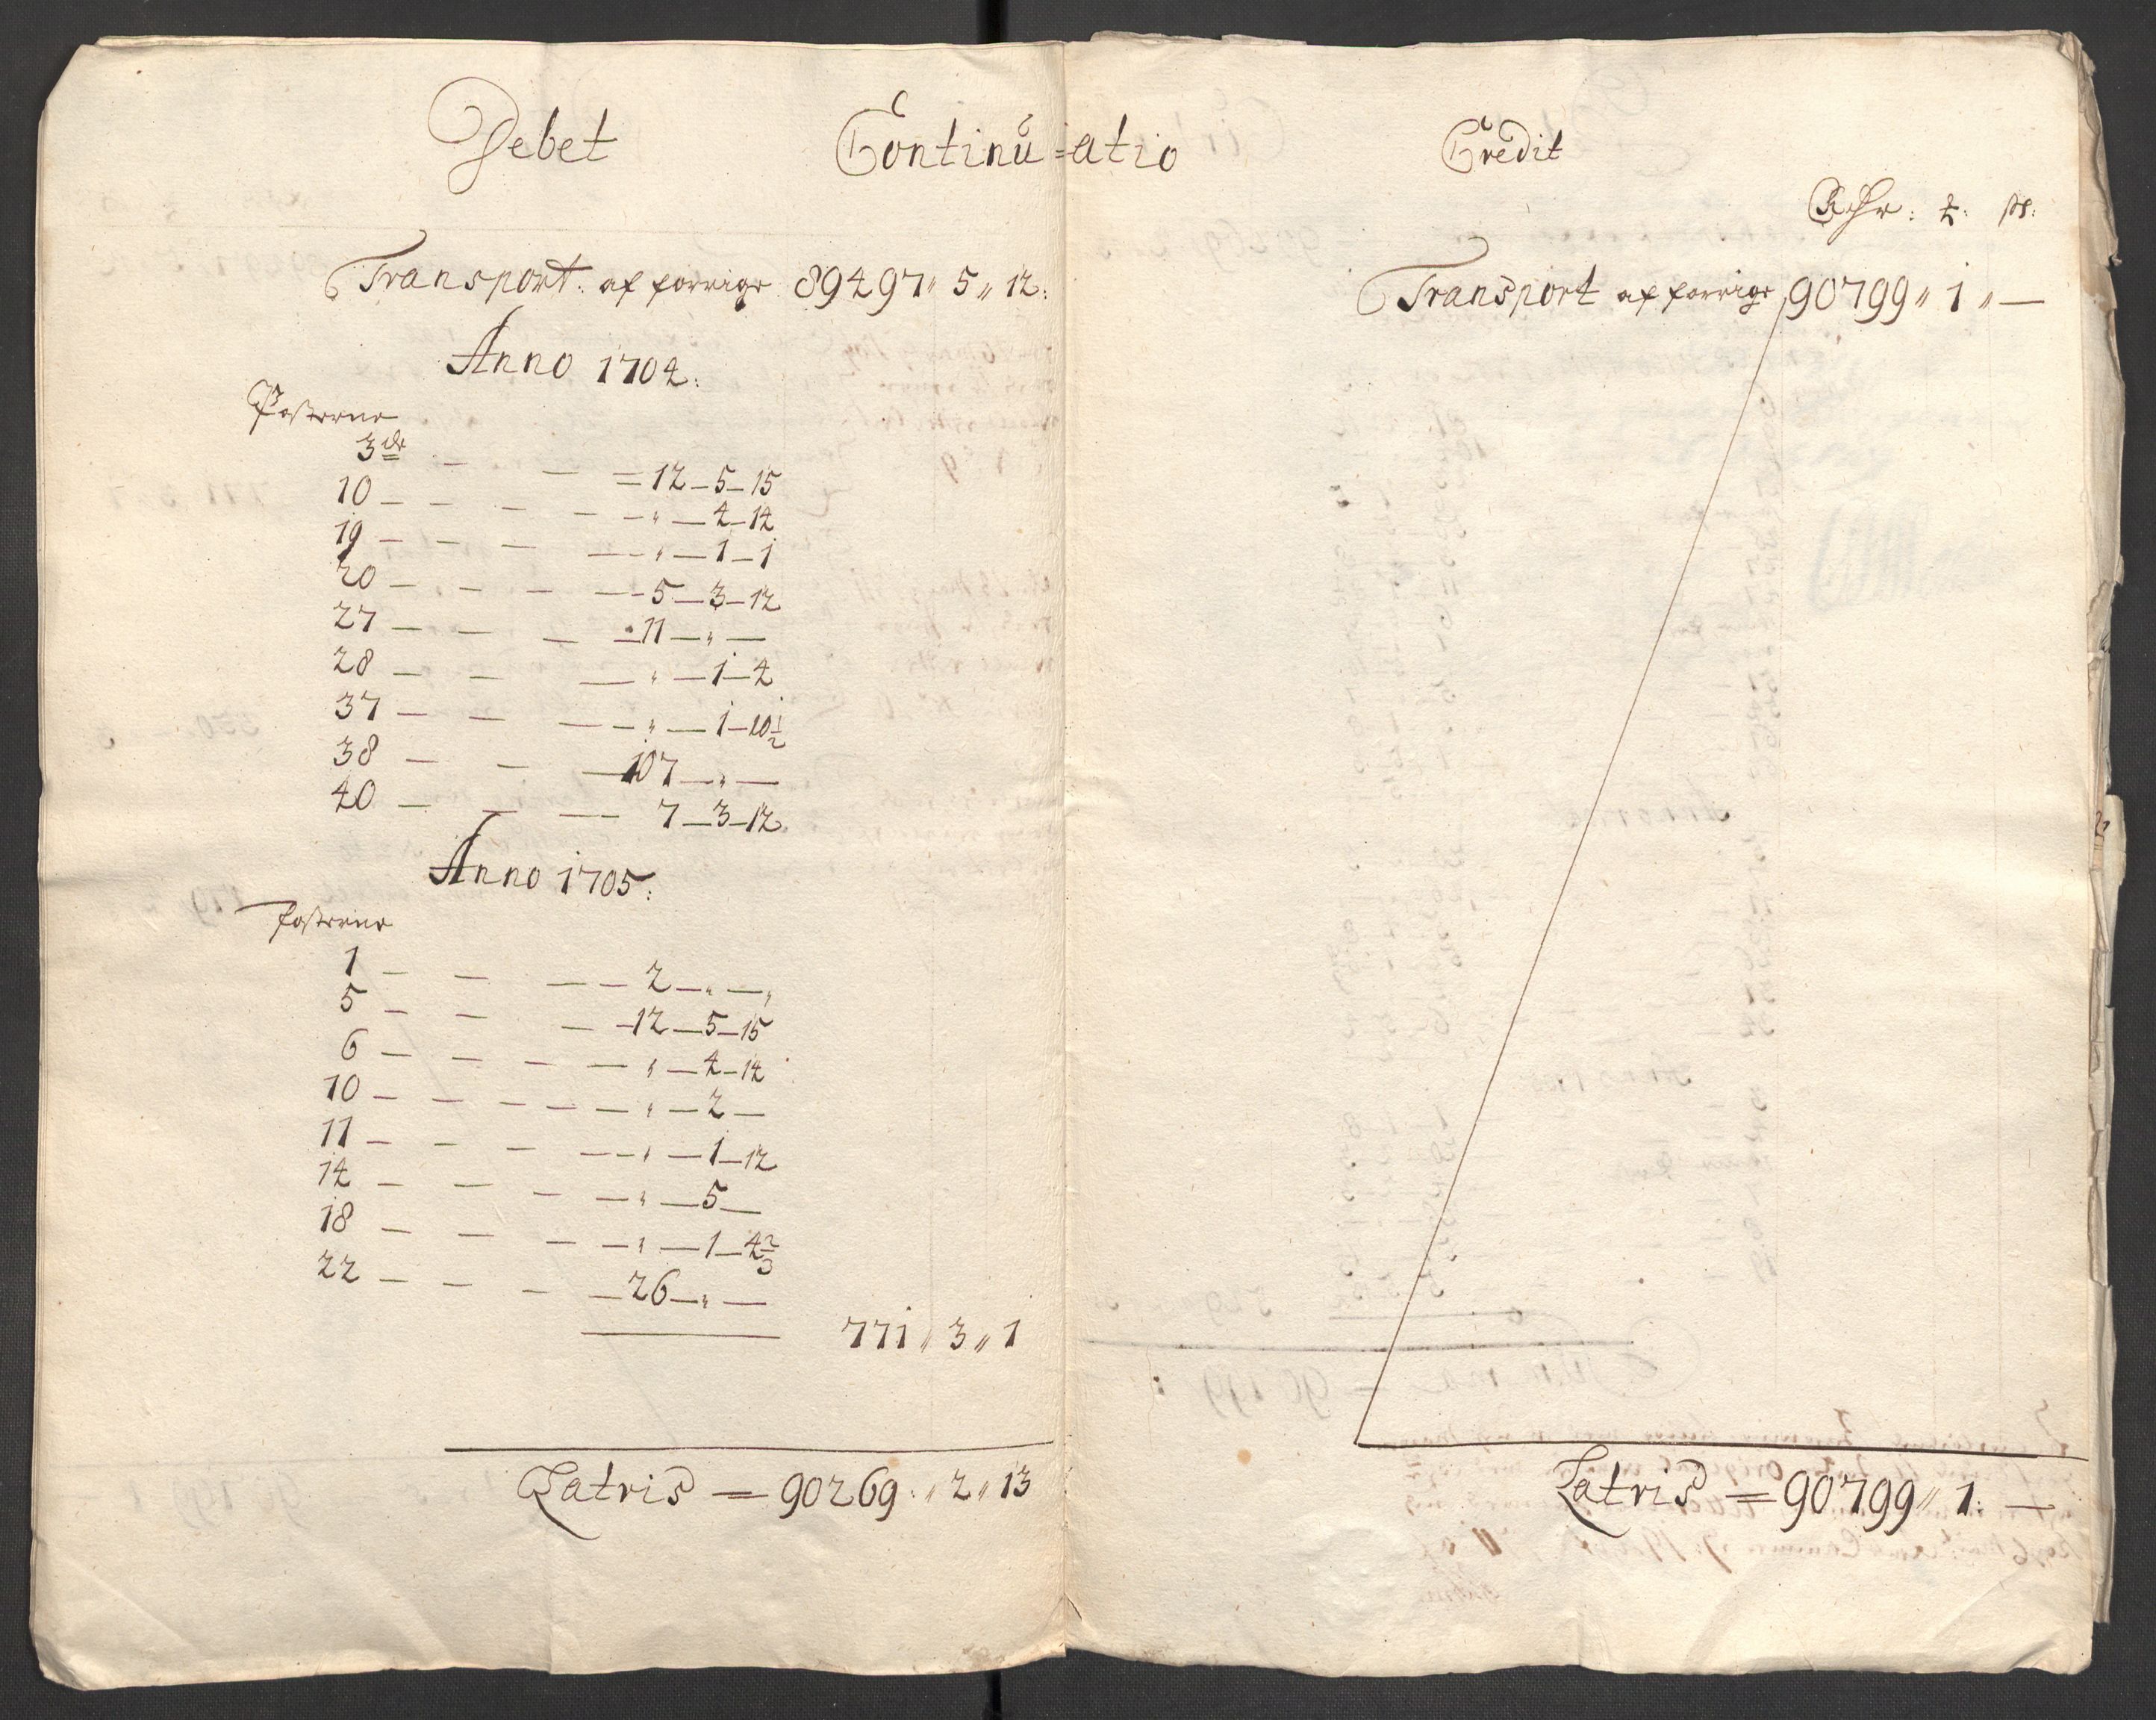 Debet Continu=atio Credit
Rdr: ℔: ß:
Transport: af forrige 89497„ 5„ 12:
Anno 1704:
Posterne
3die — — = 12 — 5 — 15
10 — — — — — „ — 4 — 14
19 — — — — — „ — 1 — 1
20 — — — — — 5 — 3 — 12
27 — — — — 11 — „ —
28 — — — „ — 1 — 4
37 — — — — „ — 1 — 10½
38 — — — 107 — „ —
40 — — — 7 — 3 — 12
Anno 1705:
Posterne
1 — — — — 2 — „ — „
5 — — — — 12 — 5 — 15
6 — — — — „ — 4 — 14
10 — — — — — „ — 2 —
11 — — — — — „ — 1 — 12
14 — — — — „ — 5 —
18 — — — — „ — 1 — 4⅔
22 — — — — 26 — „ —
771„ 3„ 1
Latris = 90269„ 2„ 13
Transport af forrige 90799„ 1„ —
Latris = 90799„ 1: —